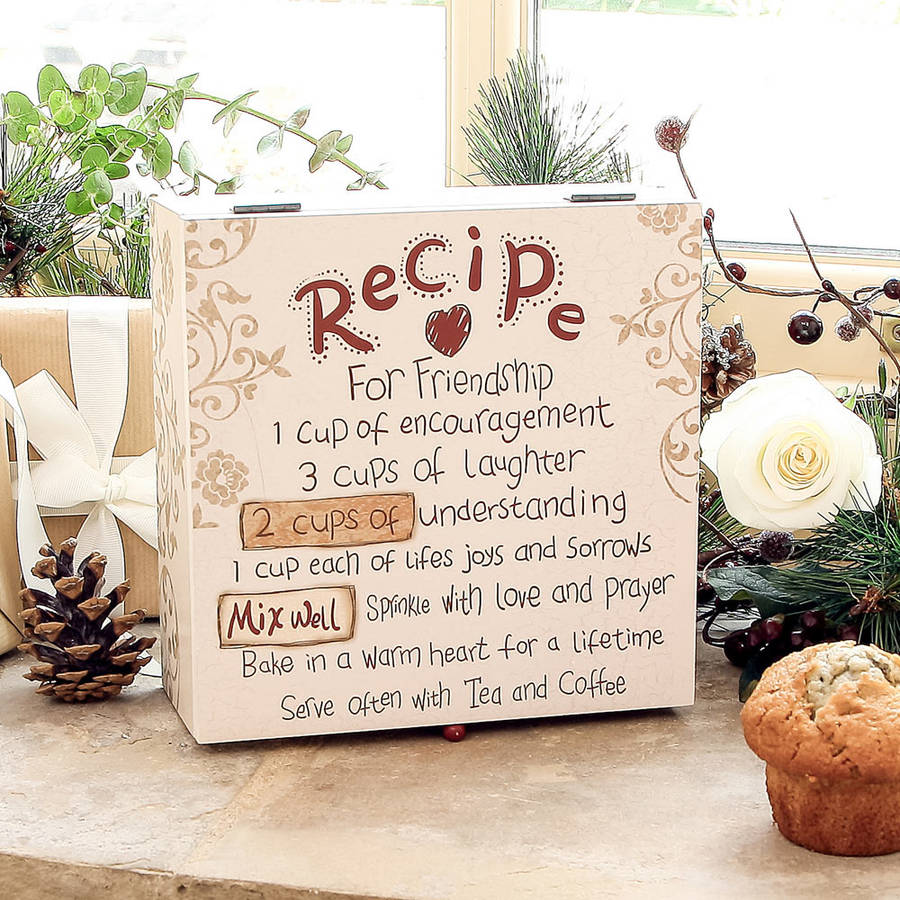 Recipe
For Friendship
1 cup of encouragement
3 cups of laughter
2 cups of understanding
1 cup each of lifes joys and sorrows
Mix well Sprinkle with love and prayer
Bake in a warm heart for a lifetime
Serve often with Tea and Coffee